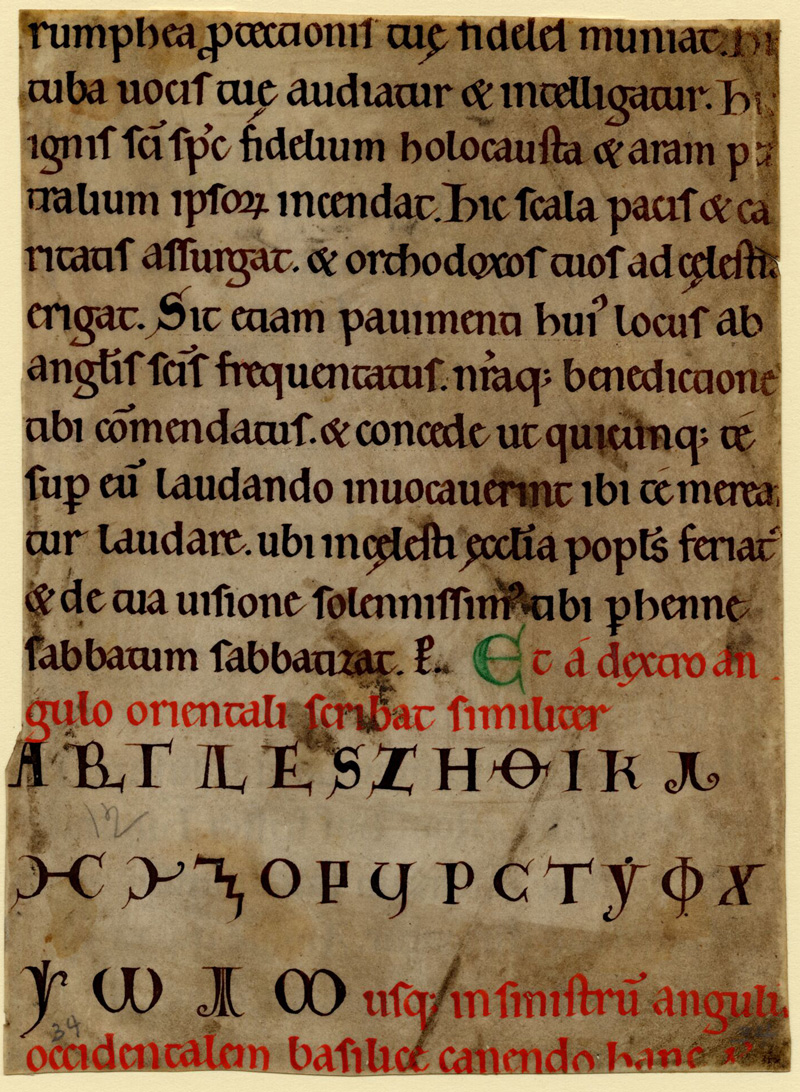 rumphea ꝓtectionis tuę fideles muniat. Hi
tuba uocis tuę audiatur & intelligatur. Hi
ignis sc̄i sp̄c fidelium holocausta & aram
tralium ipsoꝝ incendat. Hic scala pacis & ca
ritatis assurgat. & orthodoxos tuos ad cęlestia
erigat. Sic etiam pauimenti huiꝰ locus ab
angłis sc̄is frequentatus. nr̄aq; benedictione
tibi cōmendatus. & concede ut quicumq; te
sup eū laudando inuocauerint ibi te merea
tur laudare. ubi in cęlesti ęcclīa popłs feriat᷑
& de tua uisione solennissimꝰ tibi ꝑhenne
sabbatum sabbatizat. ꝑ. Et á dextro an
gulo orientali scribat similiter
Α Β Γ Δ Ε S Ζ Η Θ Ι Κ Λ
Μ Ν Ξ Ο Π Ϥ Ρ C Τ Υ Φ Χ
Ψ Ω
usq; in sinistrū anguli
occidentalem basilice canendo hanc
12
34